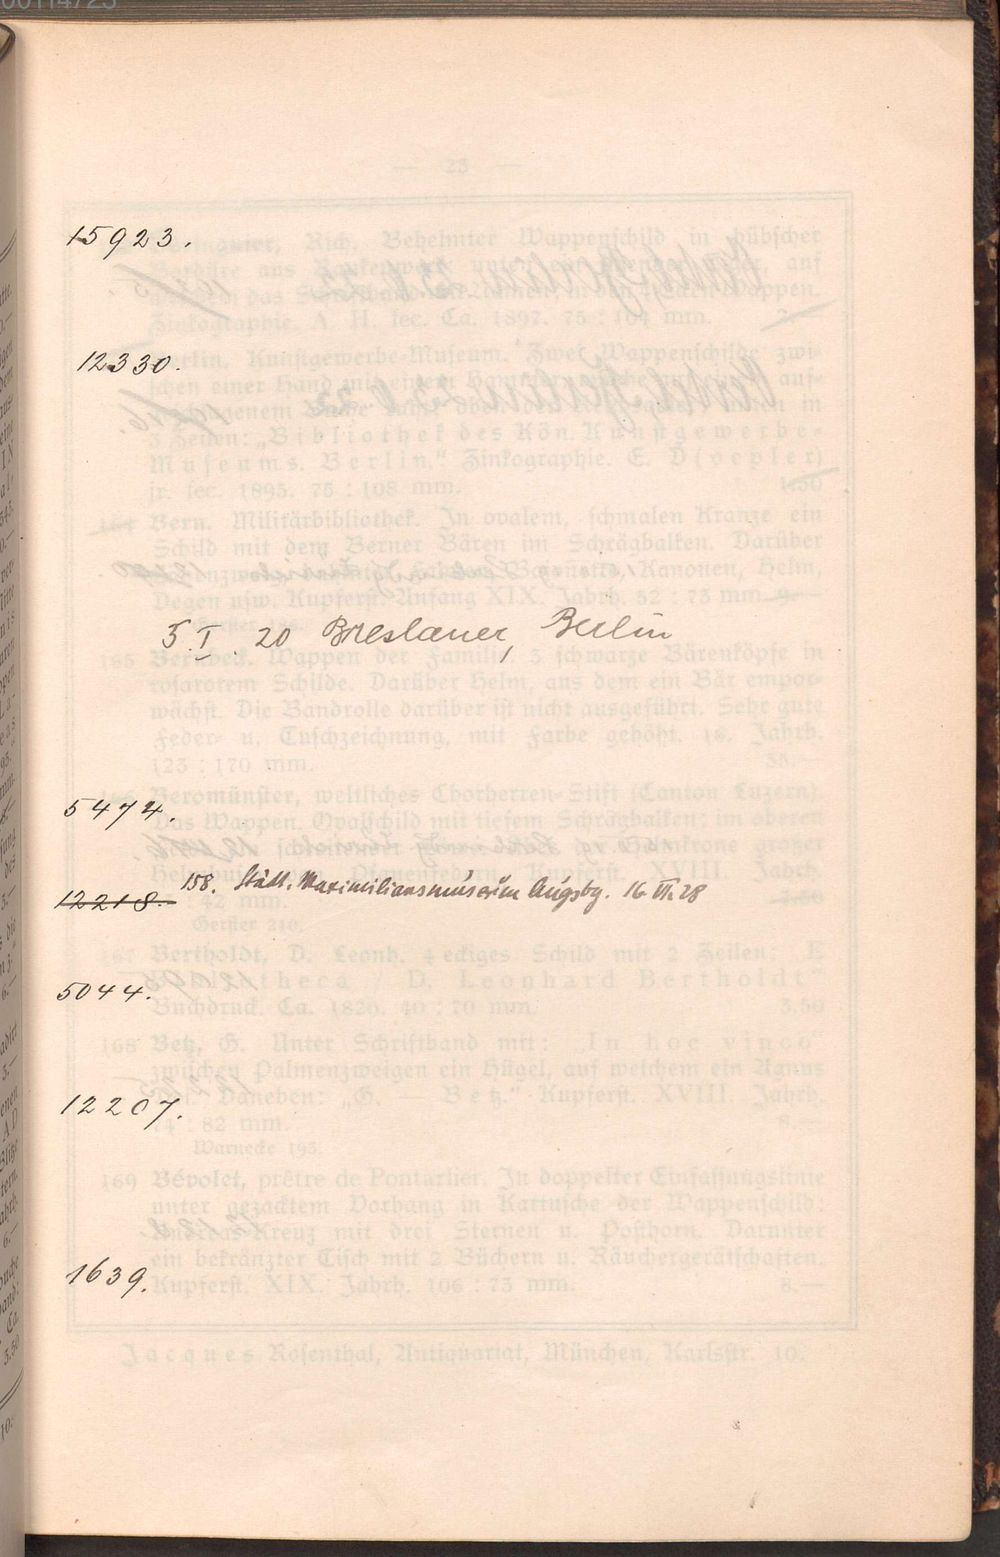 15923.
12330.
5.I.20 Breslauer, Berlin
5474.
158. Städt. Maximiliansmuseum Augsbg. 16.VII.28
12218.
5044.
12207.
1639.
— 23 —
Rich. Behelmter Wappenschild in hübscher
Zinkographie. A. H. fec. Ca. 1897. 75 : 104 mm.
Berlin, Kunstgewerbe-Museum. Zwei Wappenschilde zwi-
3 Zeilen: „Bibliothek des Kön. Kunstgewerbe-
Museums. Berlin." Zinkographie. E. D(oepler)
jr. fec. 1895. 75 : 108 mm. 1.50
164 Bern. Militärbibliothek. In ovalem, schmalen Kranze ein
Schild mit dem Berner Bären im Schrägbalken. Darüber
Kanonen, Helm,
Degen usw. Kupferst. Anfang XIX. Jahrh. 52 : 73 mm 9.—
165 Bernbeck. Wappen der Familie. 3 schwarze Bärenköpfe in
rosarotem Schilde. Darüber Helm, aus dem ein Bär empor-
wächst. Die Bandrolle darüber ist nicht ausgeführt. Sehr gute
Feder- u. Tuschzeichnung, mit Farbe gehöht. 18. Jahrh.
123 : 170 mm. 35.—
166 Beromünster, weltliches Chorherren-Stift (Canton Luzern).
Das Wappen. Ovalschild mit tiefem Schrägbalken; im oberen
Kupferst. XVIII. Jahrh.
: 42 mm.
Gerster 210.
167 Bertholdt, D. Leonh. 4 eckiges Schild mit 2 Zeilen: „E
Bibliotheca / D. Leonhard Bertholdt"
Buchdruck. Ca. 1820. 40 : 70 mm. 3.50
168 Betz, G. Unter Schriftband mit: „In hoc vinco"
zwischen Palmenzweigen ein Hügel, auf welchem ein Agnus
Dei. Daneben: „G. — Betz." Kupferst. XVIII. Jahrh.
74 : 82 mm. 8.—
Warnecke 193.
169 Bévolet, prêtre de Pontarlier. In doppelter Einfassungslinie
unter gezacktem Vorhang in Kartusche der Wappenschild:
Andreas-Kreuz mit drei Sternen u. Posthorn. Darunter
ein bekränzter Tisch mit 2 Büchern u. Räuchergerätschaften.
Kupferst. XIX. Jahrh. 106 : 73 mm. 8.—
Jacques Rosenthal, Antiquariat, München, Karlstr. 10.